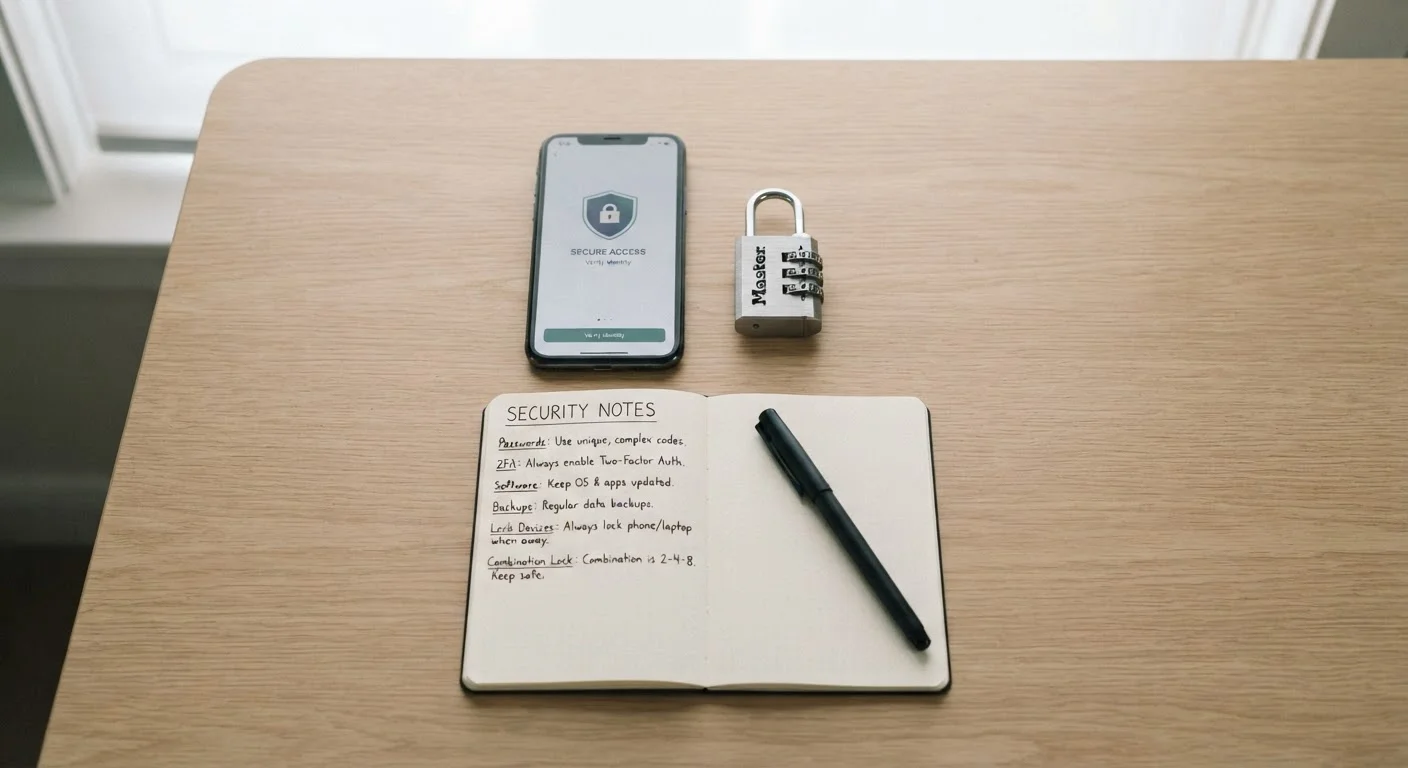 SECURE ACCESS
Master
SECURITY NOTES
Passwords: Use unique, complex codes.
2FA: Always enable Two-Factor Auth.
Software: Keep OS & apps updated.
Backups: Regular data backups.
Devices: Always lock phone/laptop
when away.
Combination Lock: Combination is 2-4-8.
Keep safe.